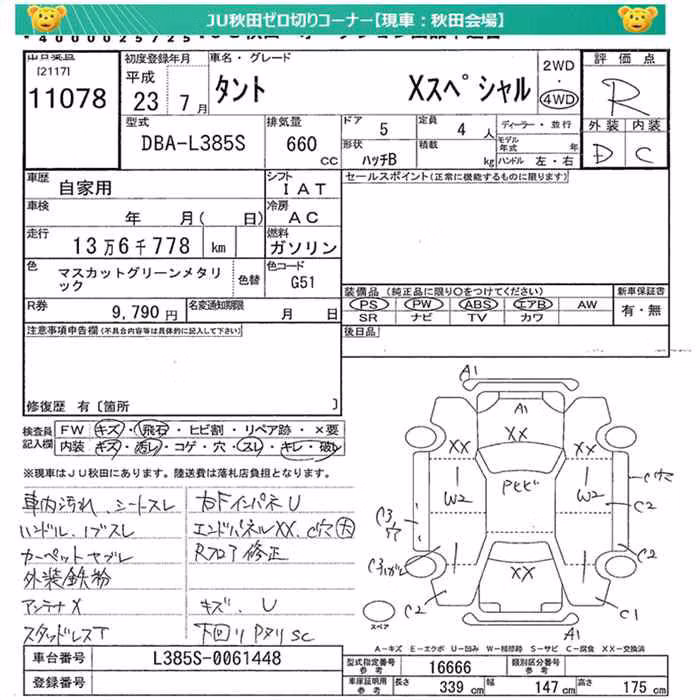 JU秋田ゼロ切りコーナー【現車：秋田会場】
[2117]
11078
初度登録年月
平成
23年7月
車名・グレード
タント Xスペシャル
2WD
・
4WD
評価点
R
外装 内装
D C
型式
DBA-L385S
排気量
660 CC
ドア 5
定員 4人
形状 ハッチB
積載 kg
ディーラー・並行
モデル年式 年
ハンドル 左・右
車歴 自家用
シフト IAT
セールスポイント(正常に機能するものに限ります)
車検 年 月( 日)
冷房 AC
走行 13万6千778 km
燃料 ガソリン
色 マスカットグリーンメタリック
色替
色コード G51
装備品 (純正品に限り○をつけてください)
PS PW ABS エアB AW
SR ナビ TV カワ
新車保証書
有・無
R券 9,790円
名変通知期限 月 日
後日品
注意事項申告欄(不具合内容等は具体的に記入して下さい)
修復歴 有〔箇所 〕
検査員記入欄
FW キズ・飛石・ヒビ割・リペア跡・×要
内装 キズ・汚レ・コゲ・穴・スレ・キレ・破レ
※現車はJU秋田にあります。陸送費は落札店負担となります。
車内汚れ、シートスレ
ハンドル、ノブスレ
カーペットヤブレ
外装鉄粉
アンテナX
スタッドレスT
右FインパネU
エンドパネルXX、C穴大
Rフロア修正
キズ、U
下回りPタリSC
A1
A1
XX
XX XX
W2 W2
Pヒビ
C穴
C2
C3穴
C2
XX
C2
C1
A1
スペア
A－キズ E－エクボ U－凹み W－補修跡 S－サビ C－腐食 XX－交換済
車台番号 L385S-0061448
登録番号
型式指定番号参考 16666
類別区分番号参考
車庫証明用参考 長さ 339 cm 幅 147 cm 高さ 175 cm